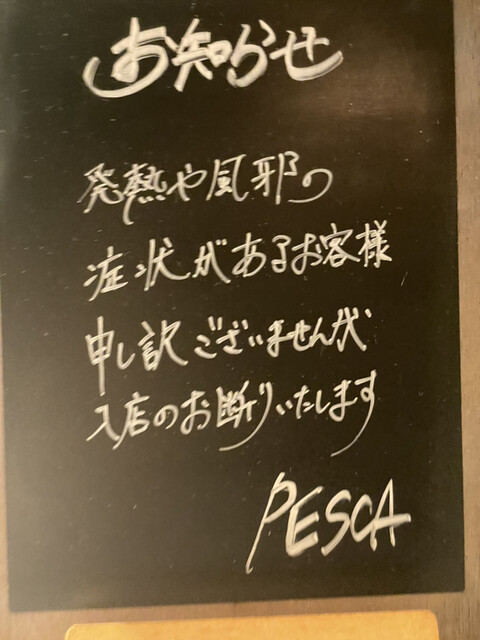 お知らせ
発熱や風邪の
症状があるお客様
申し訳ございませんが
入店のお断りいたします
PESCA